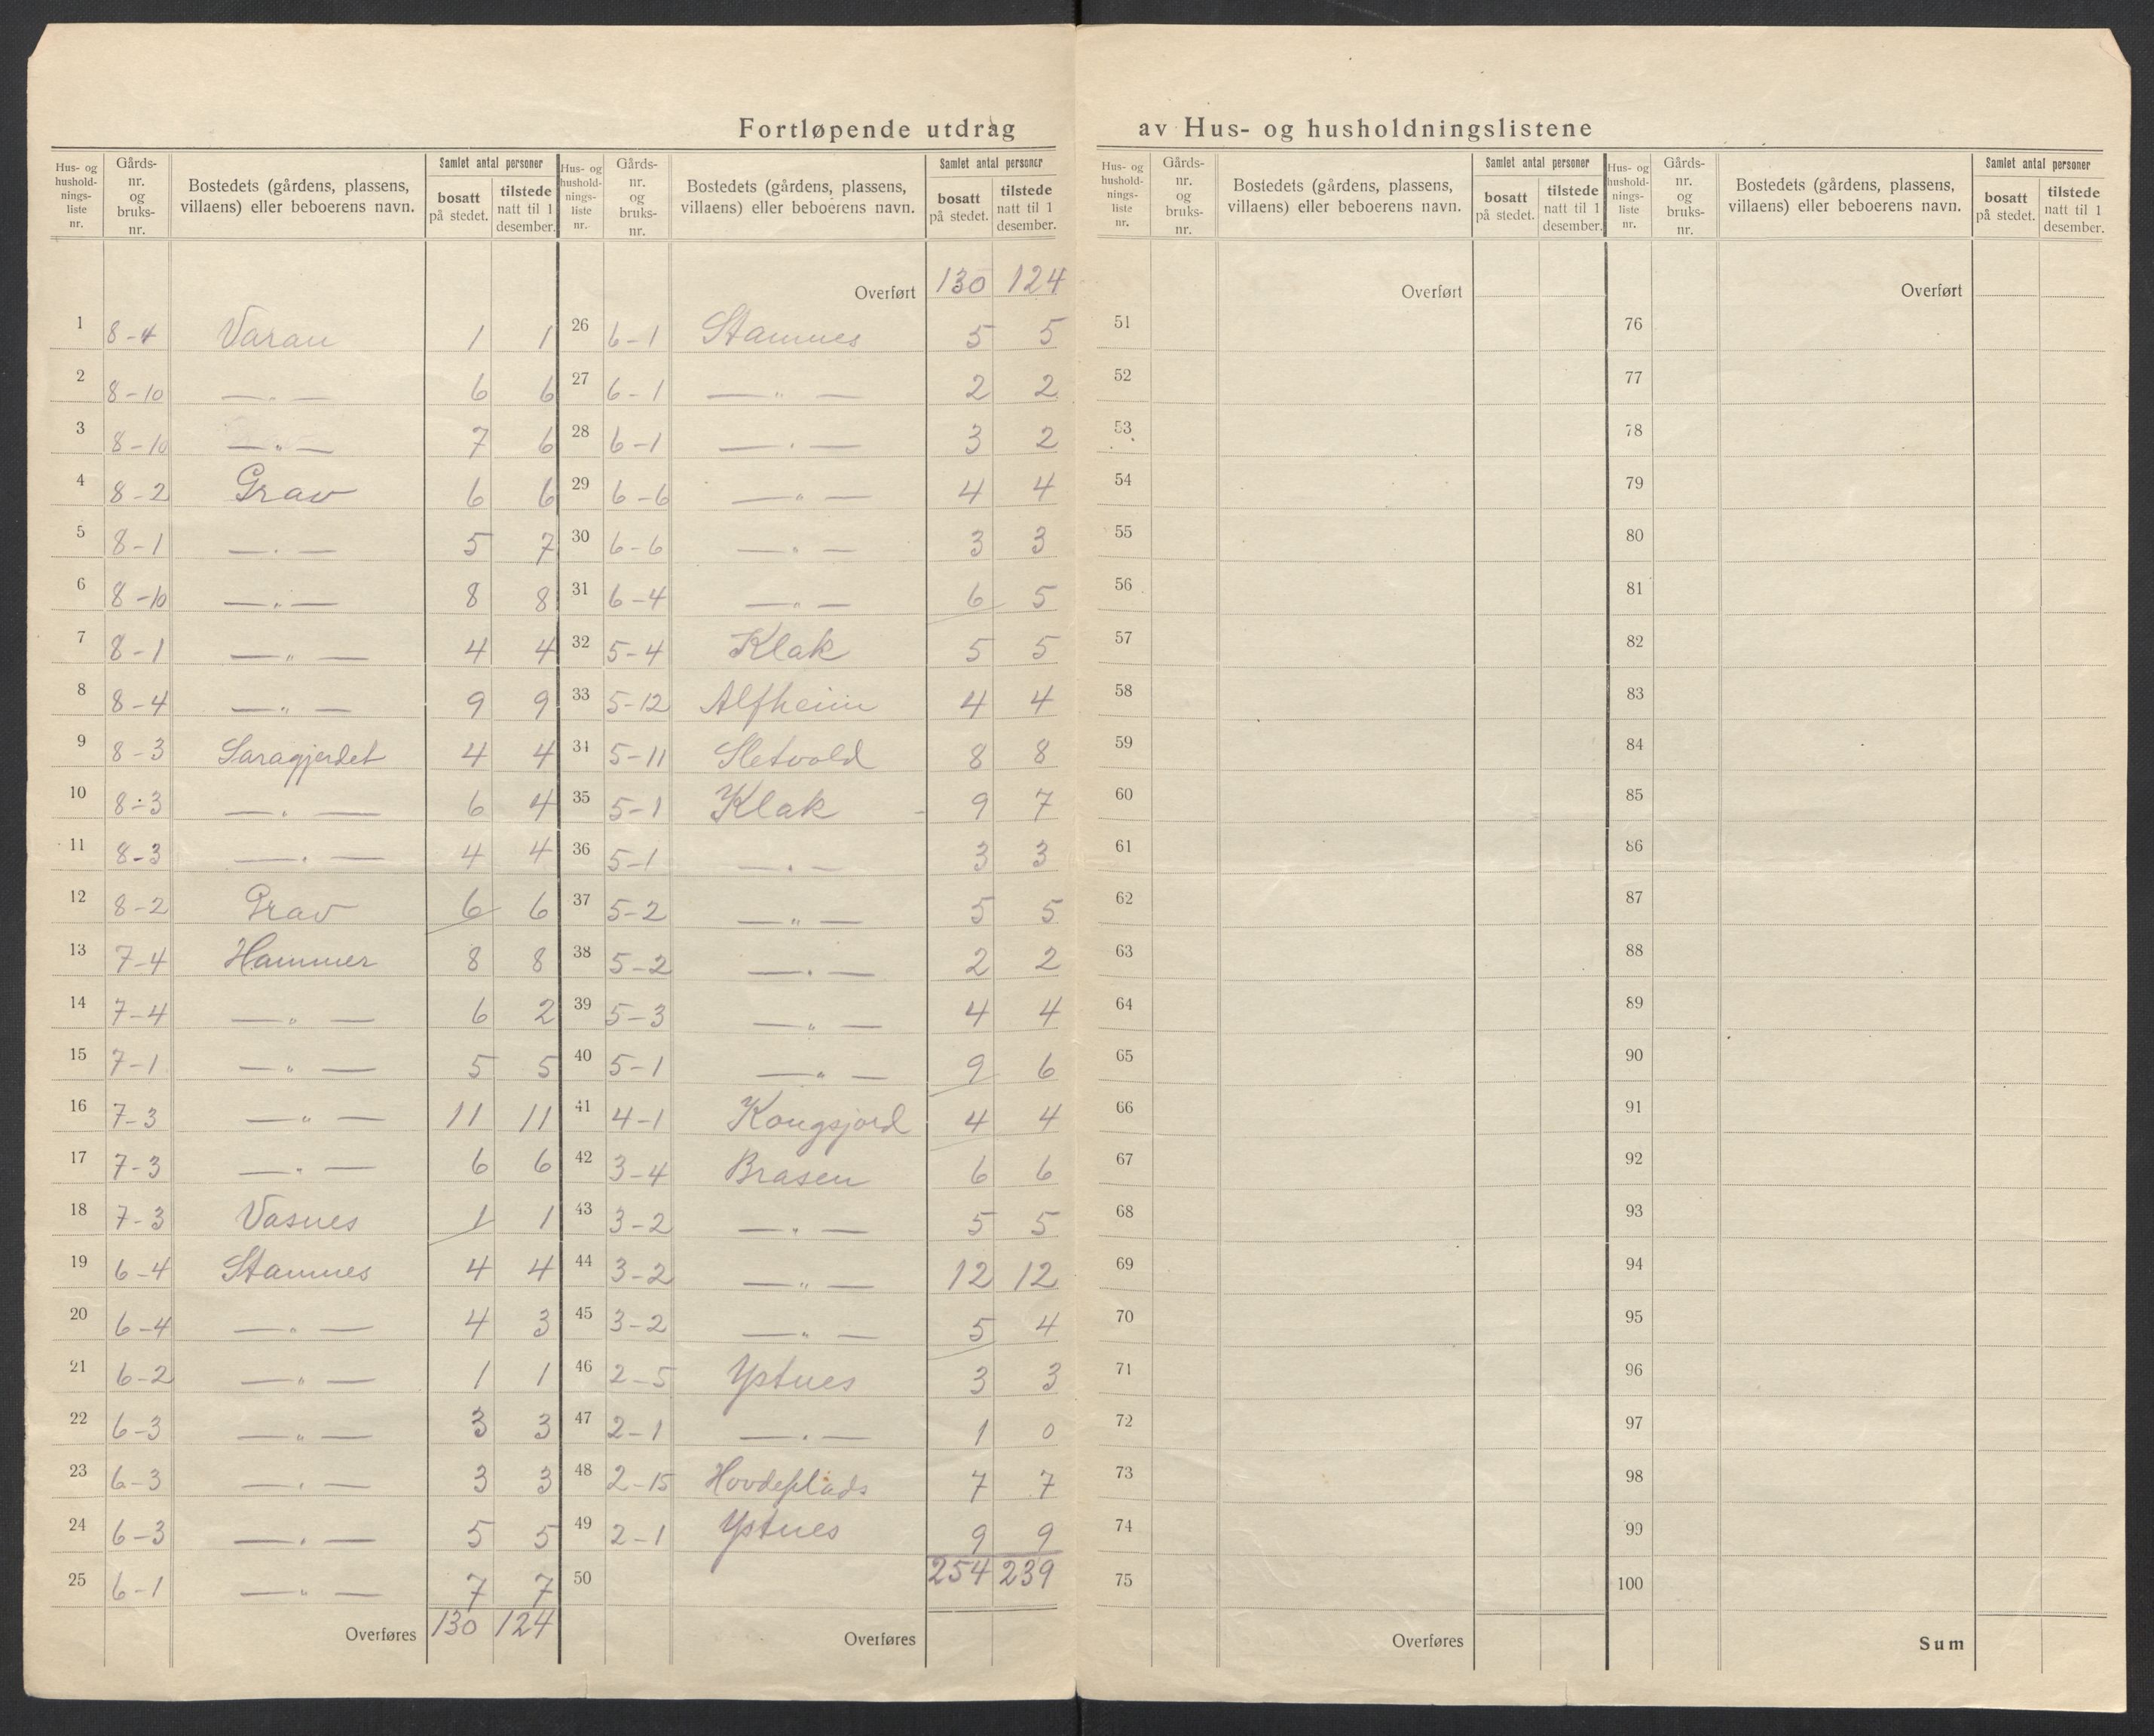 Fortløpende utdrag av Hus- og husholdningslistene
Hus- og husholdnings-liste nr. | Gårds-nr. og bruks-nr. | Bostedets (gårdens, plassens, villaens) eller beboerens navn. | Samlet antal personer bosatt på stedet. | tilstede natt til 1 desember.
1 8-4 Varan 1 1
2 8-10 — " — 6 6
3 8-10 — " — 7 6
4 8-2 Grav 6 6
5 8-1 — " — 5 7
6 8-10 — " — 8 8
7 8-1 — " — 4 4
8 8-4 — " — 9 9
9 8-3 Saragjerdet 4 4
10 8-3 — " — 6 4
11 8-3 — " — 4 4
12 8-2 Grav 6 6
13 7-4 Hammer 8 8
14 7-4 — " — 6 2
15 7-1 — " — 5 5
16 7-3 — " — 11 11
17 7-3 — " — 6 6
18 7-3 Vasnes 1 1
19 6-4 Stamnes 4 4
20 6-4 — " — 4 3
21 6-2 — " — 1 1
22 6-3 — " — 3 3
23 6-3 — " — 3 3
24 6-3 — " — 5 5
25 6-1 — " — 7 7
Overføres 130 124
Hus- og husholdnings-liste nr. | Gårds-nr. og bruks-nr. | Bostedets (gårdens, plassens, villaens) eller beboerens navn. | Samlet antal personer bosatt på stedet. | tilstede natt til 1 desember.
Overført 130 124
26 6-1 Stamnes 5 5
27 6-1 — " — 2 2
28 6-1 — " — 3 2
29 6-6 — " — 4 4
30 6-6 — " — 3 3
31 6-4 — " — 6 5
32 5-4 Klak 5 5
33 5-12 Alfheim 4 4
34 5-11 Sletvold 8 8
35 5-1 Klak 9 7
36 5-1 — " — 3 3
37 5-2 — " — 5 5
38 5-2 — " — 2 2
39 5-3 — " — 4 4
40 5-1 — " — 9 6
41 4-1 Kongsjord 4 4
42 3-4 Brasen 6 6
43 3-2 — " — 5 5
44 3-2 — " — 12 12
45 3-2 — " — 5 4
46 2-5 Ystnes 3 3
47 2-1 — " — 1 0
48 2-15 Hovdeplads 7 7
49 2-1 Ystnes 9 9
50 254 239
Overføres
Hus- og husholdnings-liste nr. | Gårds-nr. og bruks-nr. | Bostedets (gårdens, plassens, villaens) eller beboerens navn. | Samlet antal personer bosatt på stedet. | tilstede natt til 1 desember.
Overført
51
52
53
54
55
56
57
58
59
60
61
62
63
64
65
66
67
68
69
70
71
72
73
74
75
Overføres
Hus- og husholdnings-liste nr. | Gårds-nr. og bruks-nr. | Bostedets (gårdens, plassens, villaens) eller beboerens navn. | Samlet antal personer bosatt på stedet. | tilstede natt til 1 desember.
Overført
76
77
78
79
80
81
82
83
84
85
86
87
88
89
90
91
92
93
94
95
96
97
98
99
100
Sum